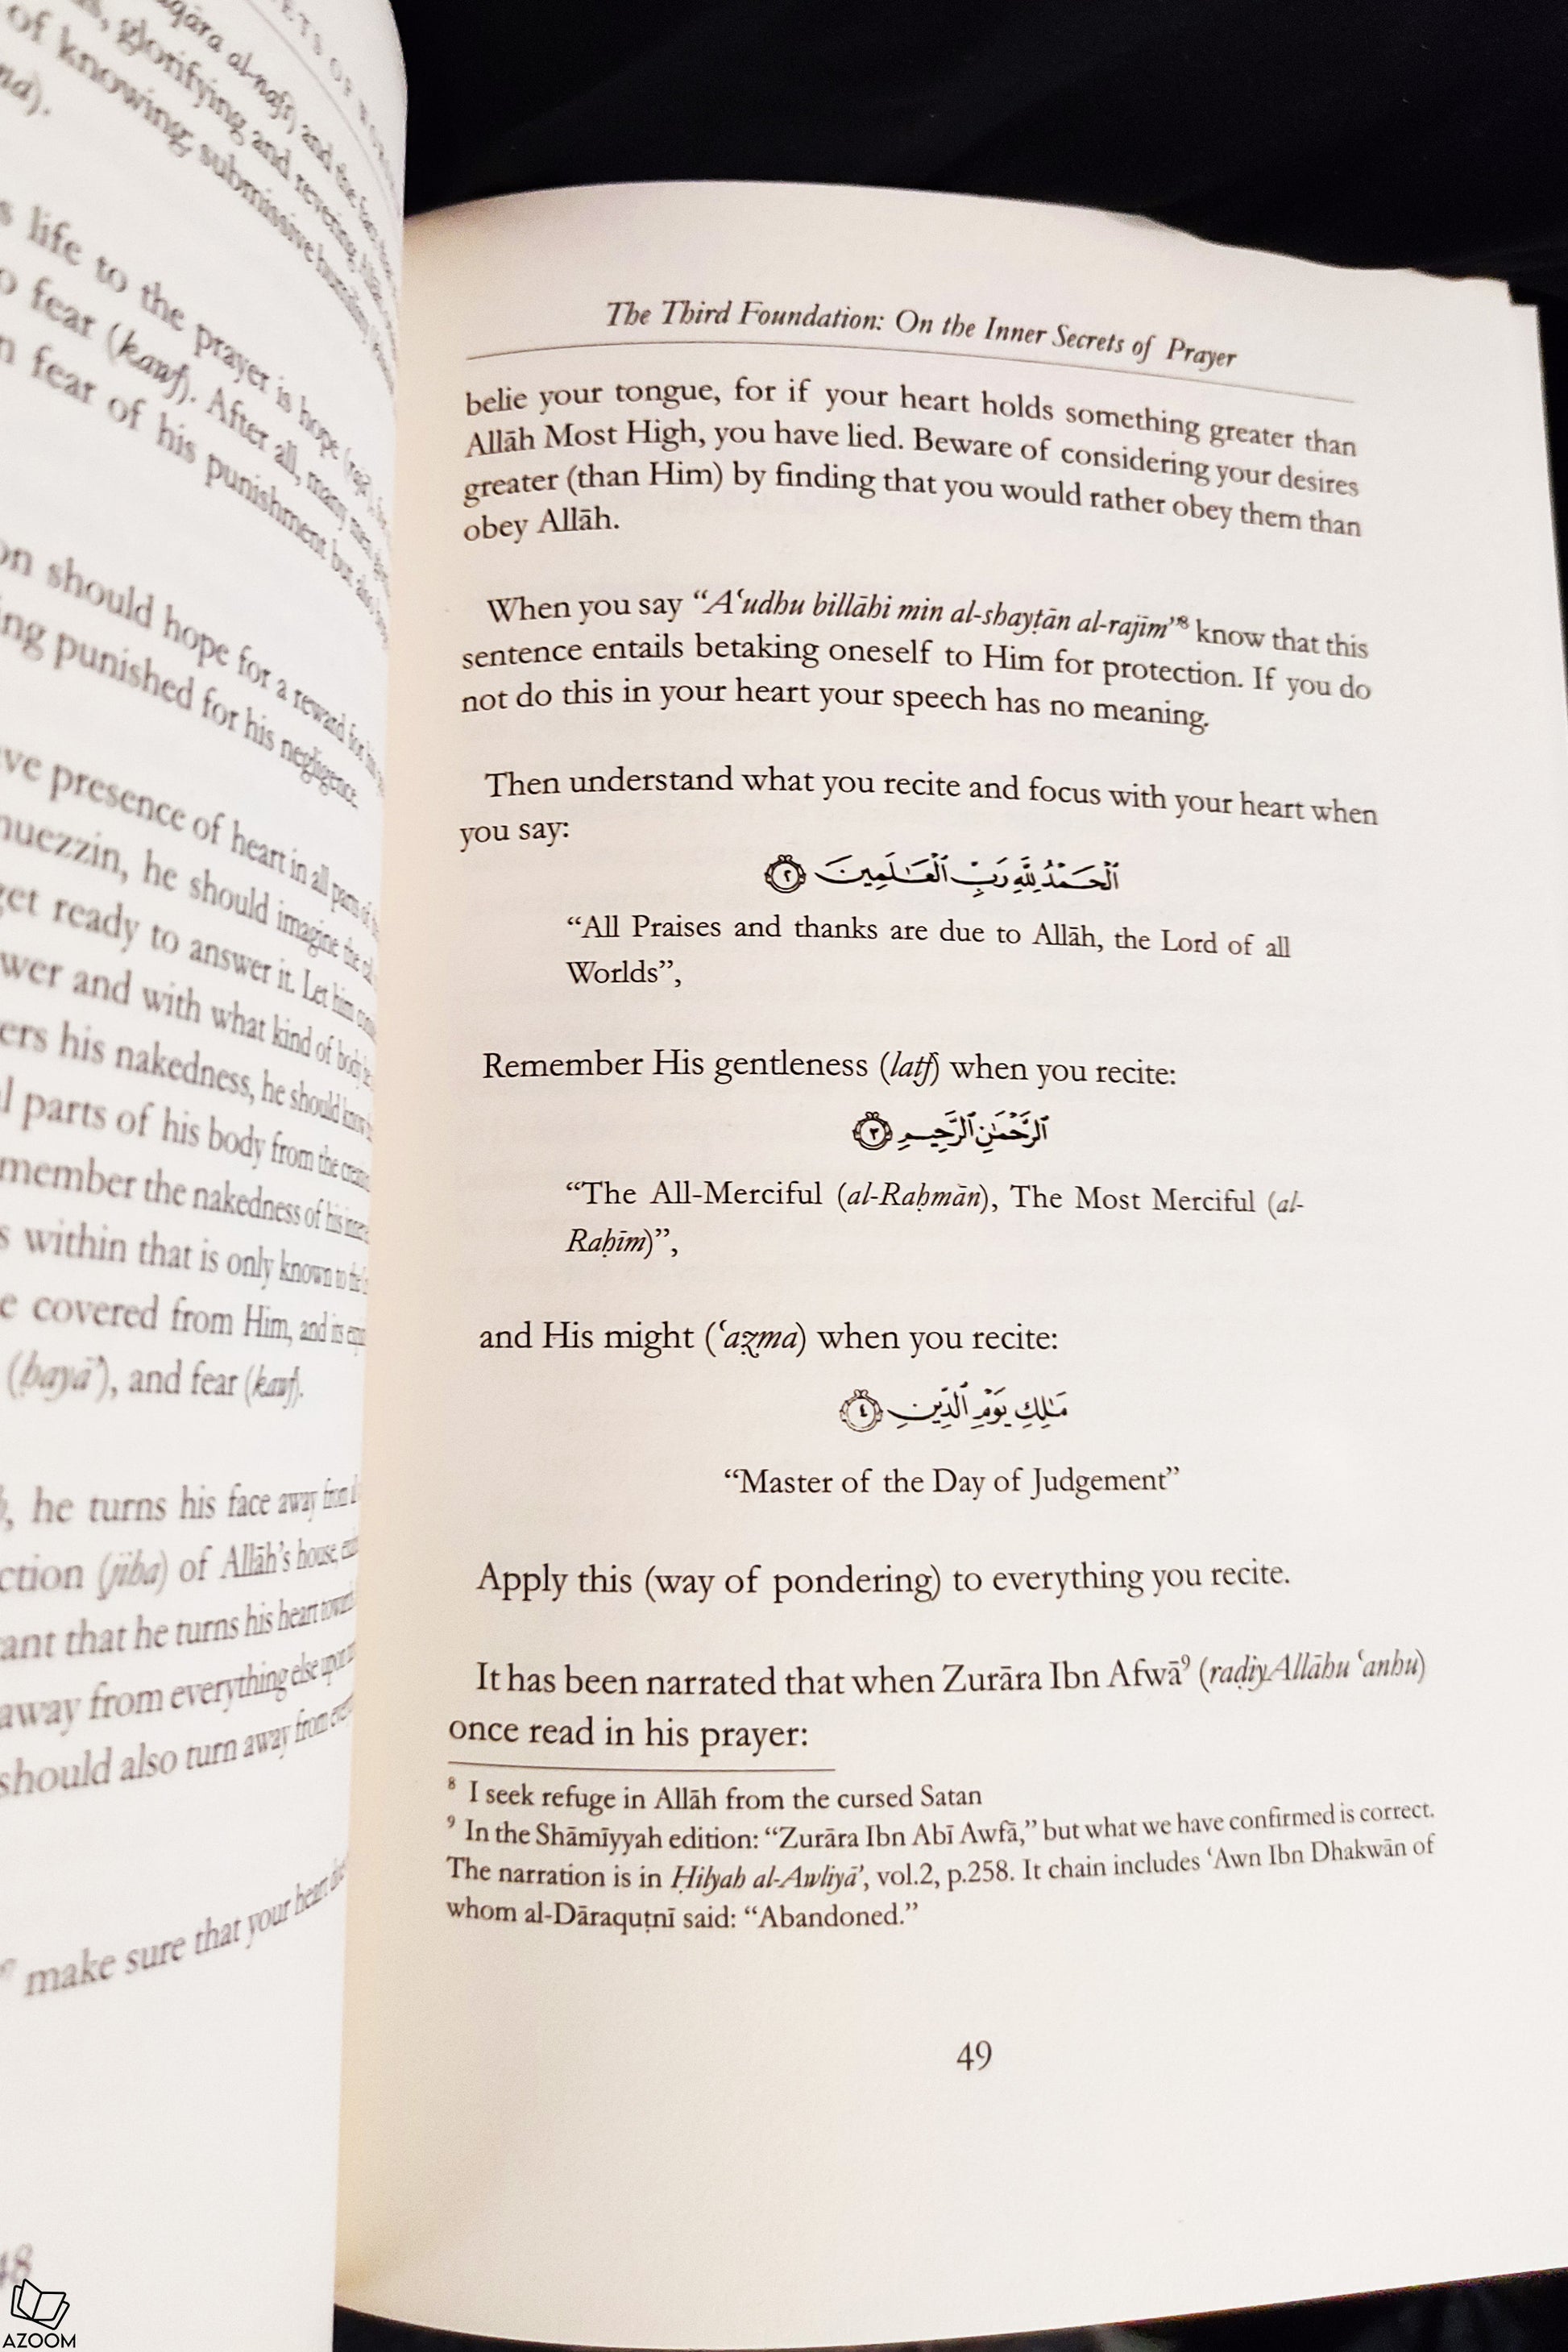 life to the prayer is hope
fear (kawf). After all, many men
fear of his punishment but also
should hope for a reward for his
punished for his negligence.
presence of heart in all parts of
he should imagine the
get ready to answer it. Let him
and with what kind of body
his nakedness, he should know
parts of his body from the
the nakedness of his
within that is only known to the
covered from Him, and its
(ḥayā’), and fear (kawf).
he turns his face away from
(jiha) of Allāh’s house,
that he turns his heart
away from everything else upon
should also turn away from
make sure that your heart
48
AZOOM
The Third Foundation: On the Inner Secrets of Prayer
belie your tongue, for if your heart holds something greater than
Allāh Most High, you have lied. Beware of considering your desires
greater (than Him) by finding that you would rather obey them than
obey Allāh.
When you say “A‘udhu billāhi min al-shayṭān al-rajīm”⁸ know that this
sentence entails betaking oneself to Him for protection. If you do
not do this in your heart your speech has no meaning.
Then understand what you recite and focus with your heart when
you say:
ٱلْحَمْدُ لِلَّهِ رَبِّ ٱلْعَـٰلَمِينَ ٢
“All Praises and thanks are due to Allāh, the Lord of all
Worlds”,
Remember His gentleness (latf) when you recite:
ٱلرَّحْمَـٰنِ ٱلرَّحِيمِ ٣
“The All-Merciful (al-Raḥmān), The Most Merciful (al-
Raḥīm)”,
and His might (‘aẓma) when you recite:
مَـٰلِكِ يَوْمِ ٱلدِّينِ ٤
“Master of the Day of Judgement”
Apply this (way of pondering) to everything you recite.
It has been narrated that when Zurāra Ibn Afwā⁹ (raḍiyAllāhu ‘anhu)
once read in his prayer:
⁸ I seek refuge in Allāh from the cursed Satan
⁹ In the Shāmīyyah edition: “Zurāra Ibn Abī Awfā,” but what we have confirmed is correct.
The narration is in Ḥilyah al-Awliyā’, vol.2, p.258. It chain includes ‘Awn Ibn Dhakwān of
whom al-Dāraquṭnī said: “Abandoned.”
49